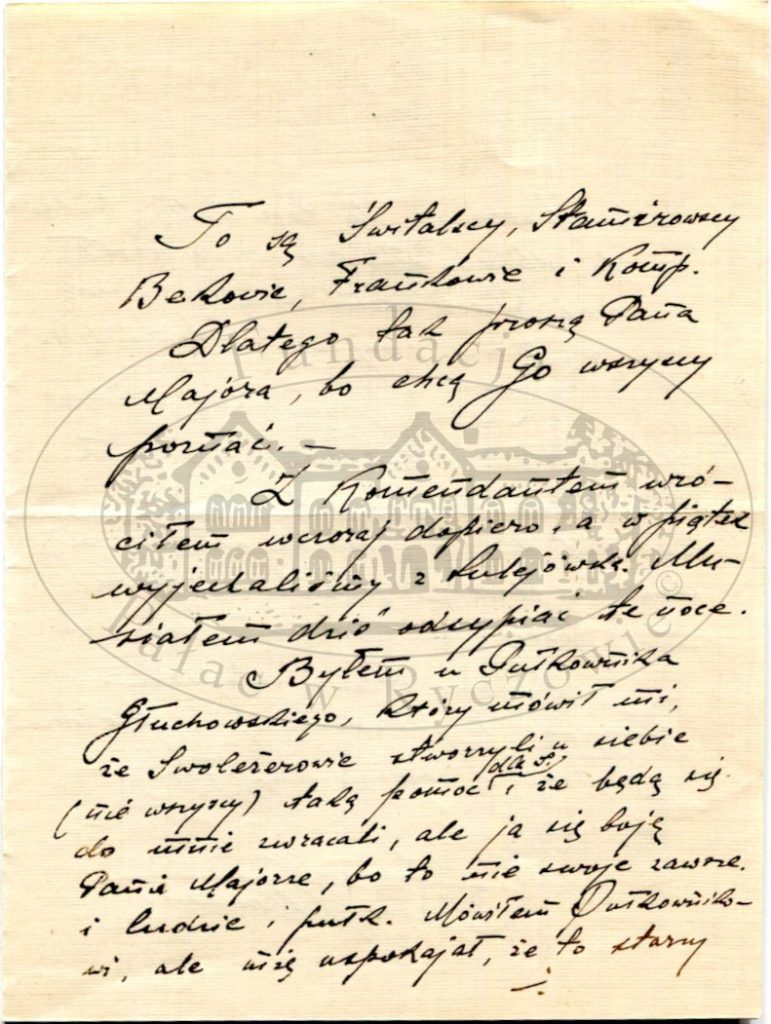 To są Świtalscy, Stamirowscy
Beckowie, Frankowie i Komp.
Dlatego tak proszę Pana
Majora, bo chcą Go wszyscy
poznać. —
Z Komendantem wró-
ciłem wczoraj dopiero, a w piątek
wyjechaliśmy z Sulejówka. Mu-
siałem dziś odsypiać te noce.
Byłem u Pułkownika
Głuchowskiego, który mówił mi,
że Szwoleżerowie stworzyli u siebie
(nie wszyscy) taką pomoc i że będą się
do mnie zwracali, ale ja się boję
Panie Majorze, bo to nie swoje zawsze.
i ludzie i pułk. Mówiłem Pułkowniko-
wi, ale mię uspokajał, że to starzy
Fundacja
Pałac w Ryczowie ©